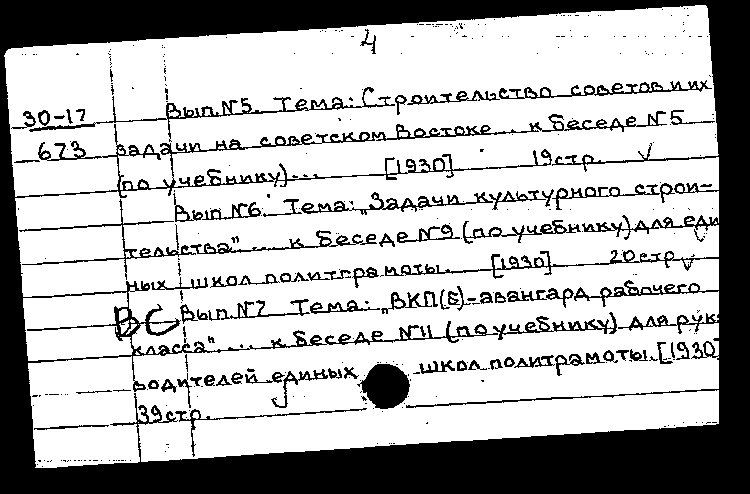 4
30-17 Вып.№5. Тема: Строительство советов и их
673 задачи на советском Востоке... к беседе №5
(по учебнику)... [1930] 19стр.
Вып.№6. Тема: „Задачи культурного строи-
тельства".... к беседе №9 (по учебнику) для еди
ных школ политграмоты. [1930] 20стр
ВС Вып.№7 Тема: „ВКП(б)-авангард рабочего
класса".... к беседе №11 (по учебнику) для рук
водителей единых школ политграмоты. [1930]
39стр.